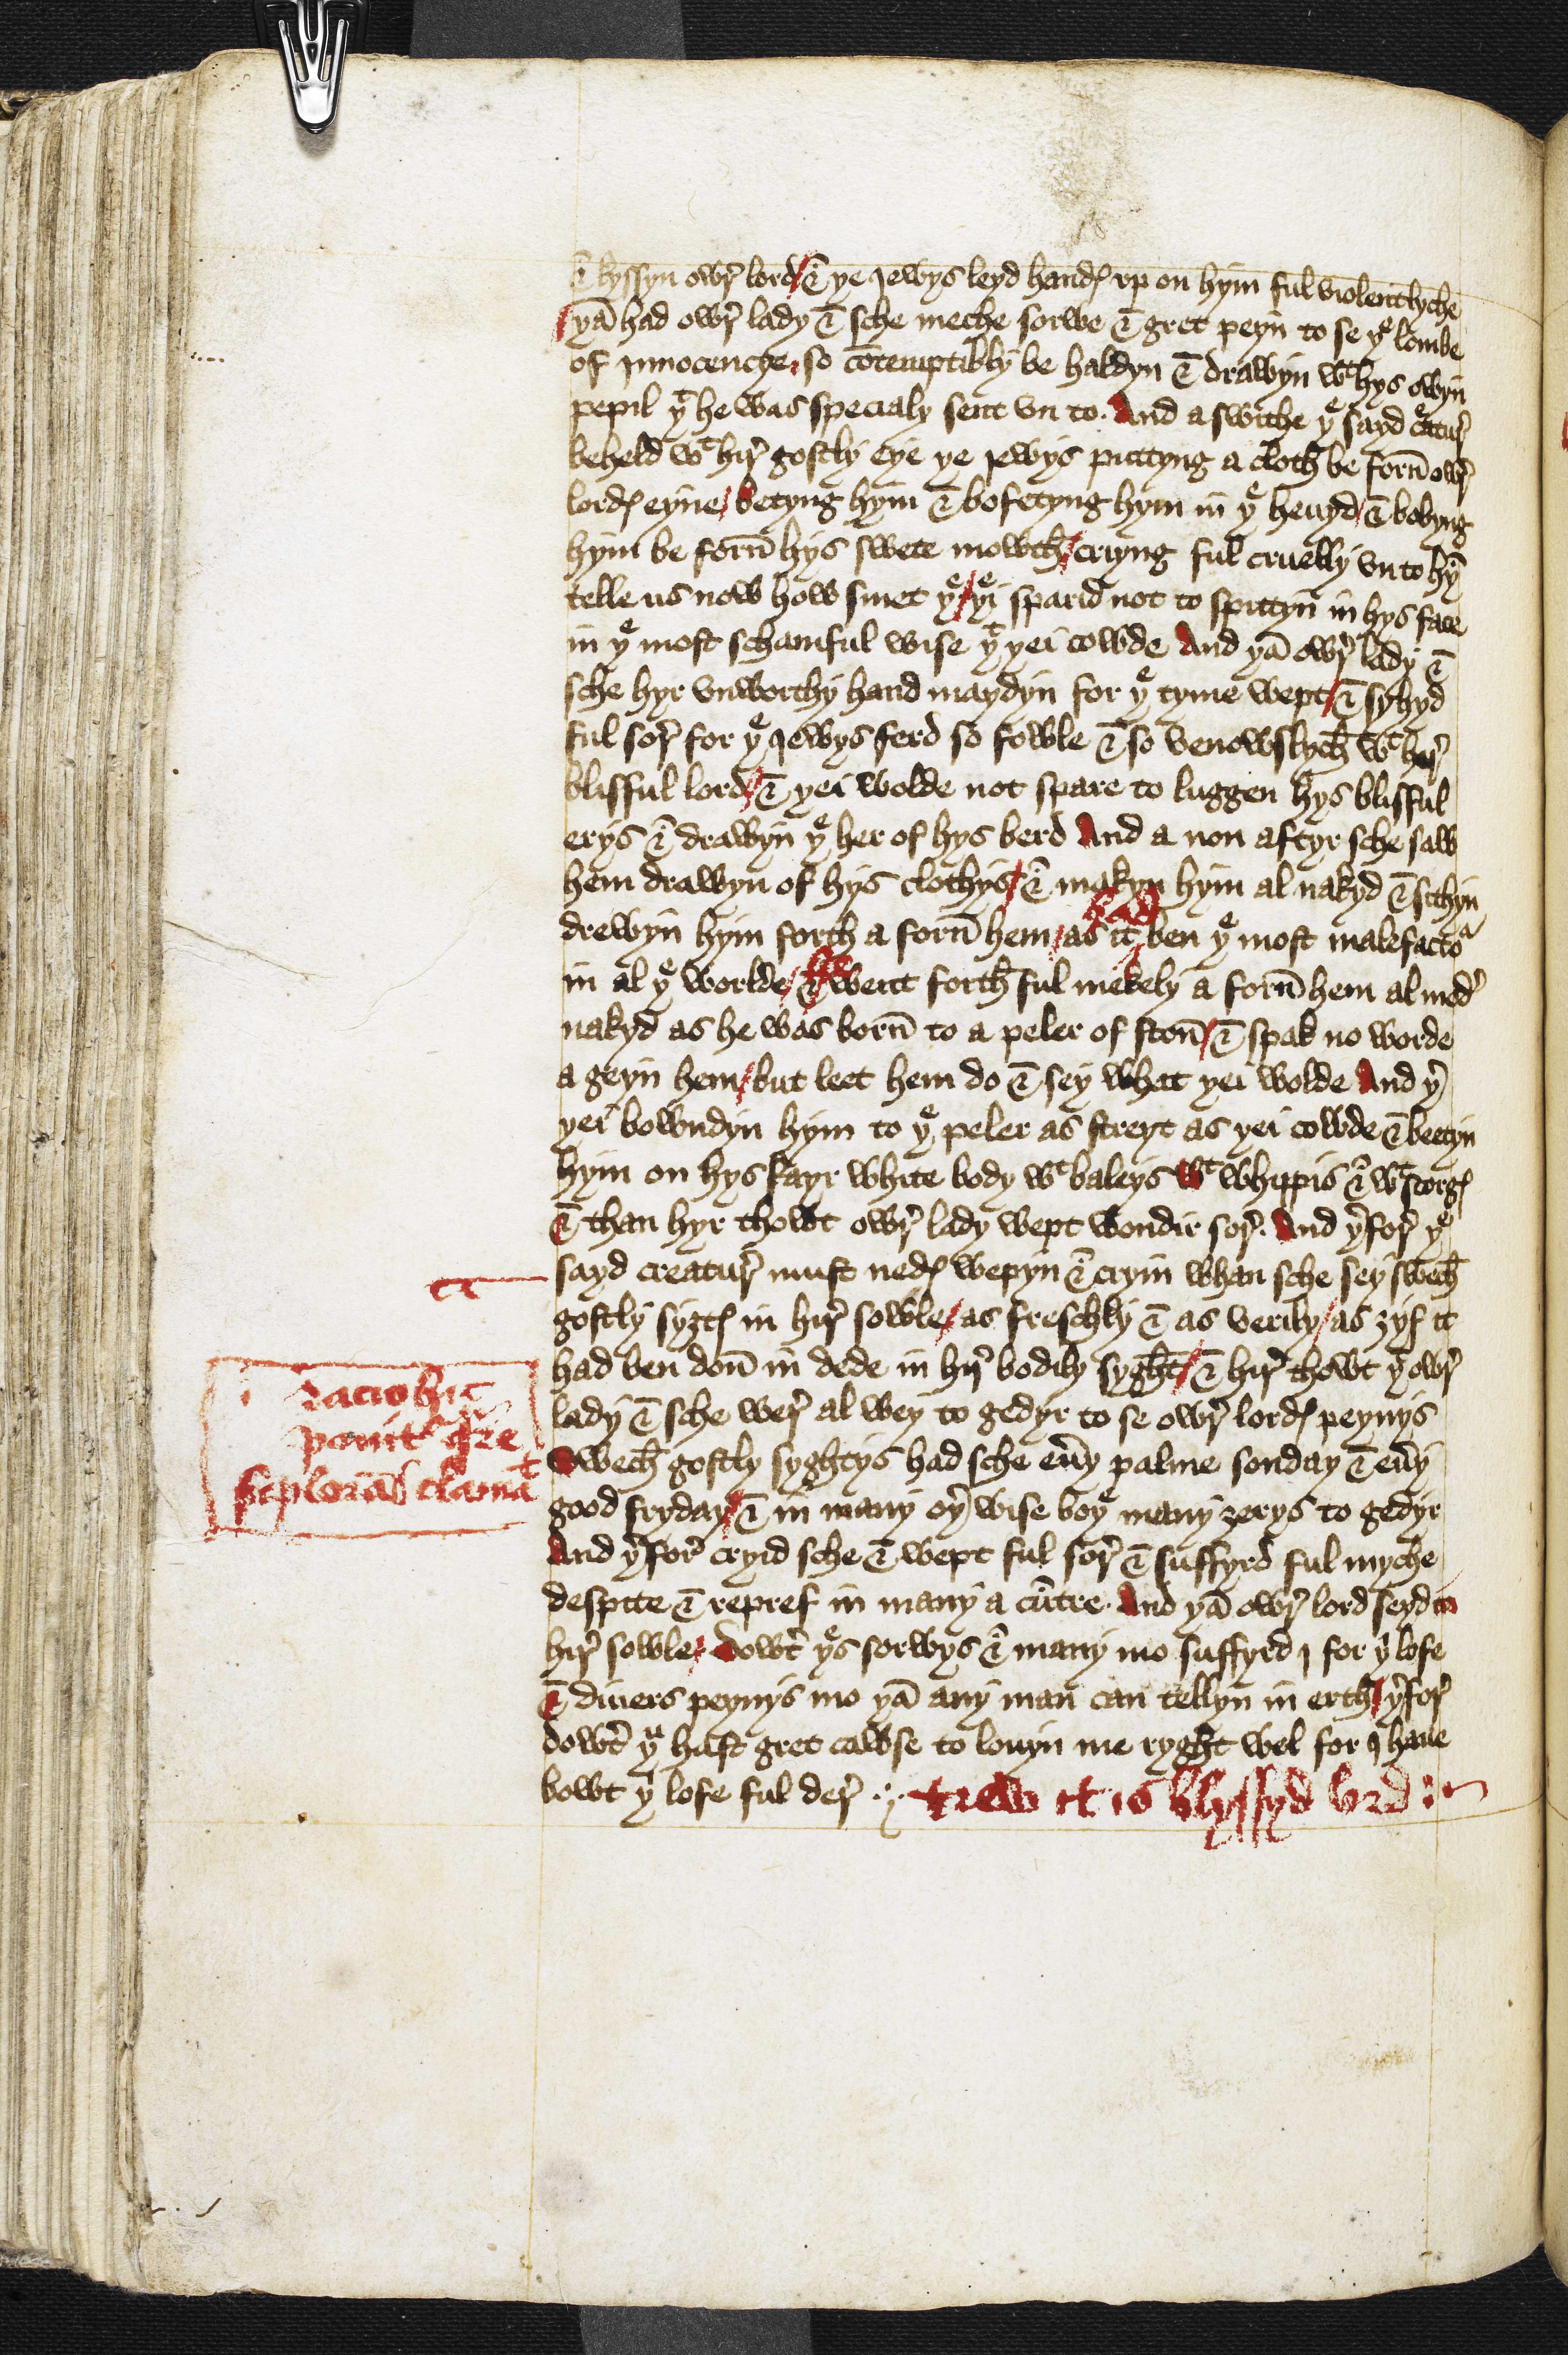 & kyssyn owr̛ lord / & þe Iewys leyd handꝭ vp on hym ful violentlyche
/ þā had owr̛ lady & sche meche sorwe & gret peyn to se yͤ lombe
of Innocencye, so cōtemptibly be haldyn & drawyn wͭ hys owyn
pepil yͭ he was specialy sent vn to. And aswithe yͤ sayd c̄atur̛
beheld wͭ hir̛ gostly eye ye Iewys puttyng a cloth be forn̄ owr̛
lordꝭ eyne / betyng hym & bofetyng hym in yͤ heuyd / & bobyng
hym be forn̄ hys swete mowth / criyng ful cruelly vn to hȳ
telle us now how smet yͤ / yͤi sparid not to spittyn in hys face
in yͤ most schamful wise yͭ yei cowde And yā owr̛ lady &
sche hyr vnworthy hand maydyn for yͤ tyme wept / & syhyd
ful sor̛ for yͤ Iewys ferd so fowle & so venowslych wͭ hir̛
blisful lord / & yei wolde not spare to luggen hys blisful
erys & drawyn yͤ her of hys berd And a non aftyr sche saw
hem drawyn of hys clothys / & makyn hym al nakyd & sithyn
had
drewyn hym forth a forn̄ hem / as it ben yͤ most malefactoͬ
he
in al yͤ worlde / & went forth ful mekely a forn̄ hem al modr̛
nakyd as he was born̄ to a peler of ston̄ / & spak no worde
a geyn hem / but leet hem do & sey what yei wolde And yr̛
yei bowndyn hym to yͤ peler as streyt as yei cowde & beetyn
hym on hys fayr white body wͭ baleys wͭ whippis & wͭ scorgꝭ
& than hyr thowt owr̛ lady wept wondir sor̛. And yr̛for̛ yͤ
sayd creatur̛ must nedꝭ wepyn & cryin whan sche sey swech
gostly sygtꝭ in hir̛ sowle / as freschly & as verily / as ȝyf it
had ben don̄ in dede in hir̛ bodily syght / & hir̛ thowt yͭ owr̛
lady & sche wer̛ al wey to gedyr to se owr̛ lordꝭ peynys
Swech gostly syghtys had sche eưy palme sonday & eưy
good fryday / & in many oyr̛ wise boyͤ many ȝerys to gedyr
And yr̛for̛ cryid sche & wept ful sor̛ & suffyrd ful myche
despite & repref in many a cūtre. And yā owr̛ lord seyd to
hir̛ sowle / dowtr̛ yͤs sorwys & many mo suffyrd I for yͥ lofe
& diuers peynys mo yā any man can tellyn in erth / yr̛for̛
dowtr̛ yͧ hast gret cawse to louyn me ryght wel for I haue
bowt yͥ lofe ful der̛ ·:· trew it is blyssyd lord
racio hic
ponitͬ qͬre
sic ploras & clamāt